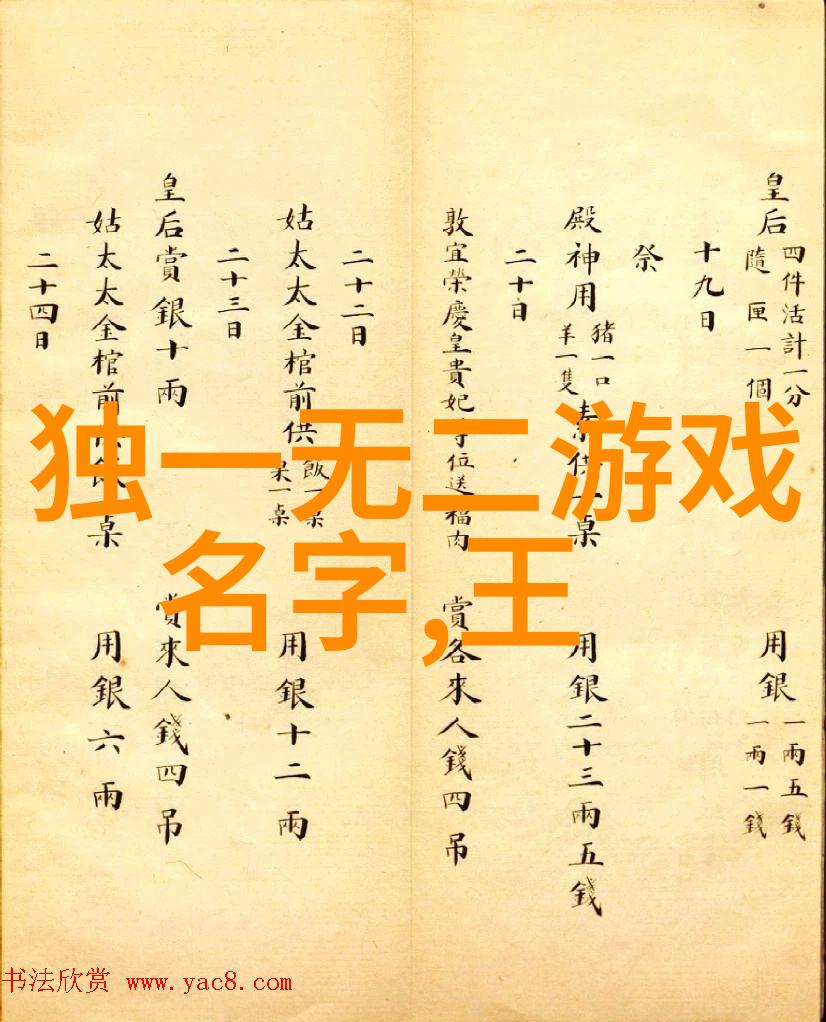 独一无二游戏
名字,王
皇后 四件活計一分 隨匣一個 用銀 一兩五錢 一兩一錢
十九日
祭
殿神用 豬一口 羊一隻 素供一桌 用銀二十三兩五錢
二十日
敦宜榮慶皇貴妃位送福肉 賞各來人錢四吊
二十二日
姑太太金棺前供 飯一桌 果一桌 用銀十二兩
二十三日
皇后賞銀十兩 賞來人錢四吊
姑太太金棺前 桌 用銀六兩
二十四日
书法欣赏 www.yac8.com